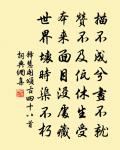 描不成兮畫不就
贊不及兮休生受
本來面目沒處藏
世界壞時渠不朽
釋慧開頌古四十八首
詞典網集